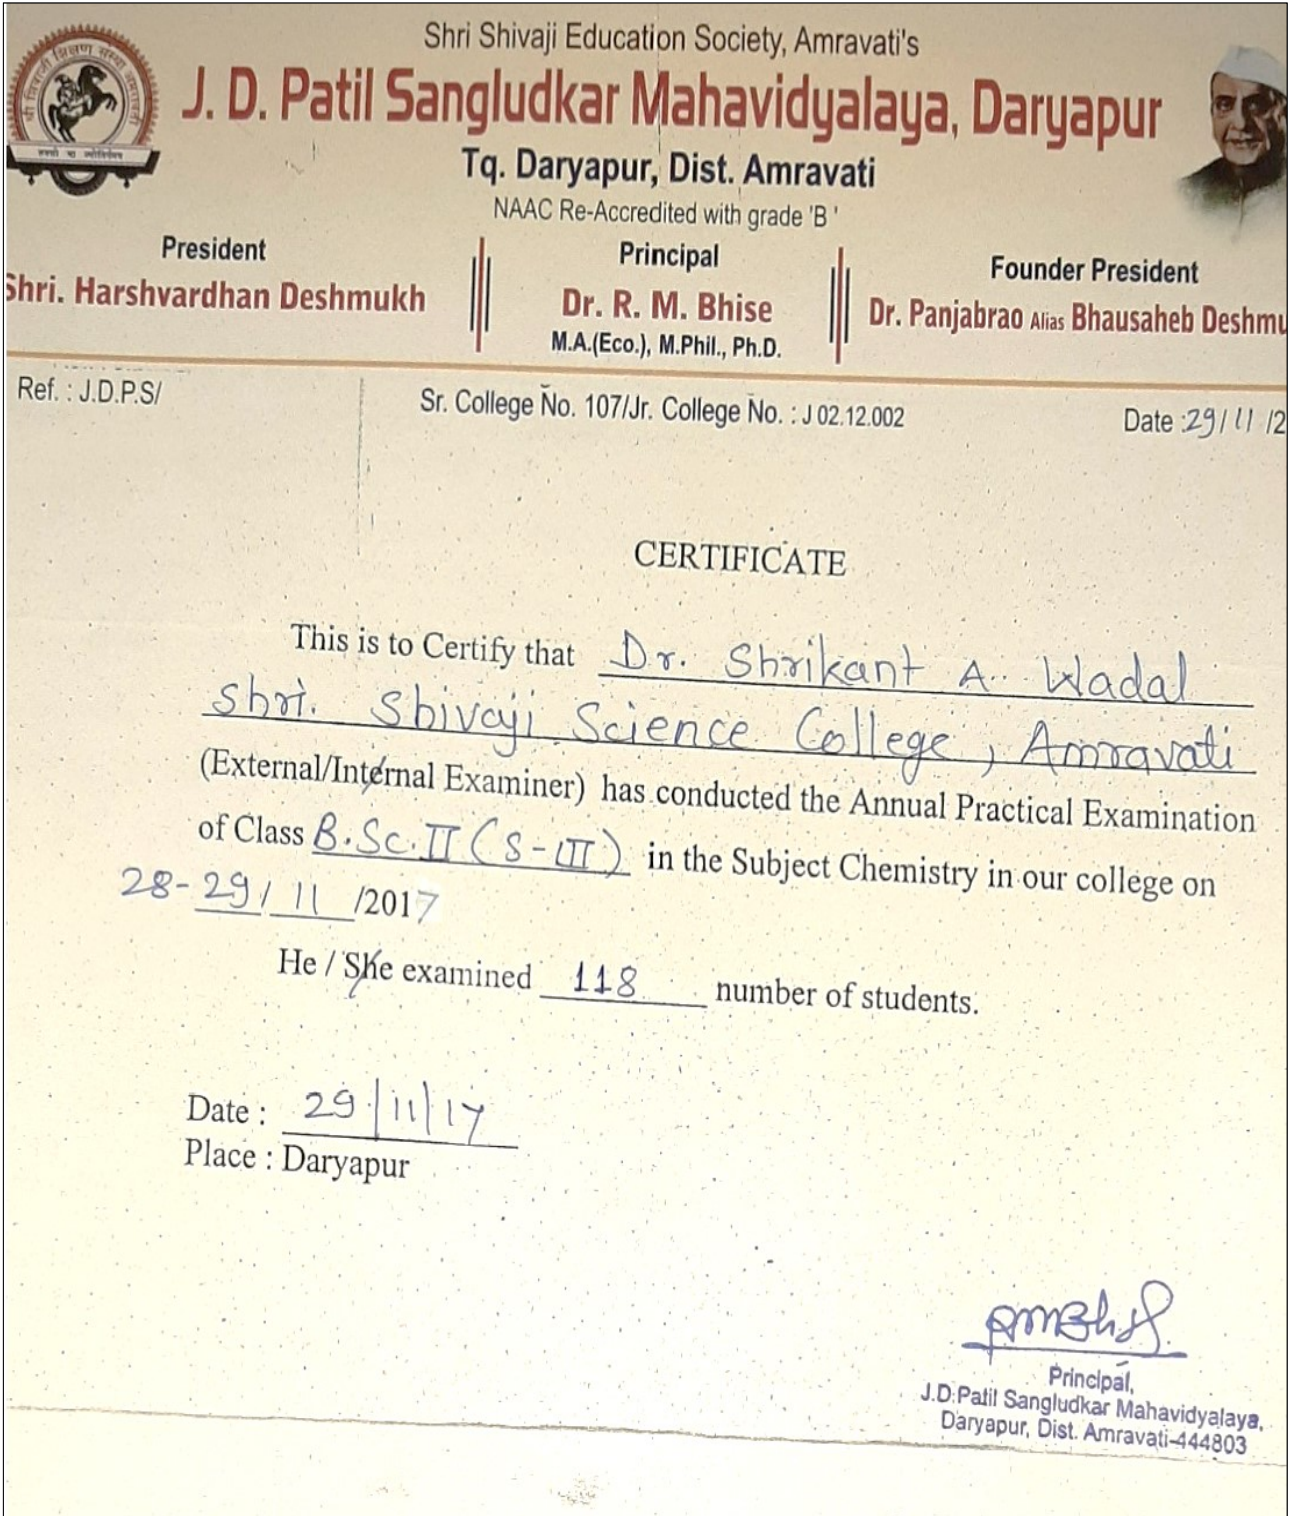 Shri Shivaji Education Society, Amravati's
J. D. Patil Sangludkar Mahavidyalaya, Daryapur
Tq. Daryapur, Dist. Amravati
NAAC Re-Accredited with grade 'B '
President
Shri. Harshvardhan Deshmukh
Principal
Dr. R. M. Bhise
M.A.(Eco.), M.Phil., Ph.D.
Founder President
Dr. Panjabrao Alias Bhausaheb Deshmu
Ref. : J.D.P.S/
Sr. College No. 107/Jr. College No. : J 02.12.002
Date :29/11/2
CERTIFICATE
This is to Certify that Dr. Shrikant A. Wadal
Shri. Shivaji Science College, Amravati
(External/Internal Examiner) has conducted the Annual Practical Examination
of Class B.Sc.II (S-III) in the Subject Chemistry in our college on
28-29/11/2017
He / She examined 118 number of students.
Date : 29/11/17
Place : Daryapur
Principal,
J.D.Patil Sangludkar Mahavidyalaya,
Daryapur, Dist. Amravati-444803